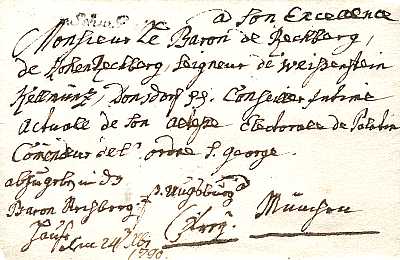 a Son Excellence
Monsieur Le Baron de Rechberg,
de HohenRechberg, Seigneur de Weißenstein
Kellmüntz, Donsdorf pp. Conseiller Intime
actuelle de Son Altesse Electorale de Palatin
Comendeur de l'ordre S. george
abzugeben in dß
Baron Rechberg. p. Augsburg
München
1790.